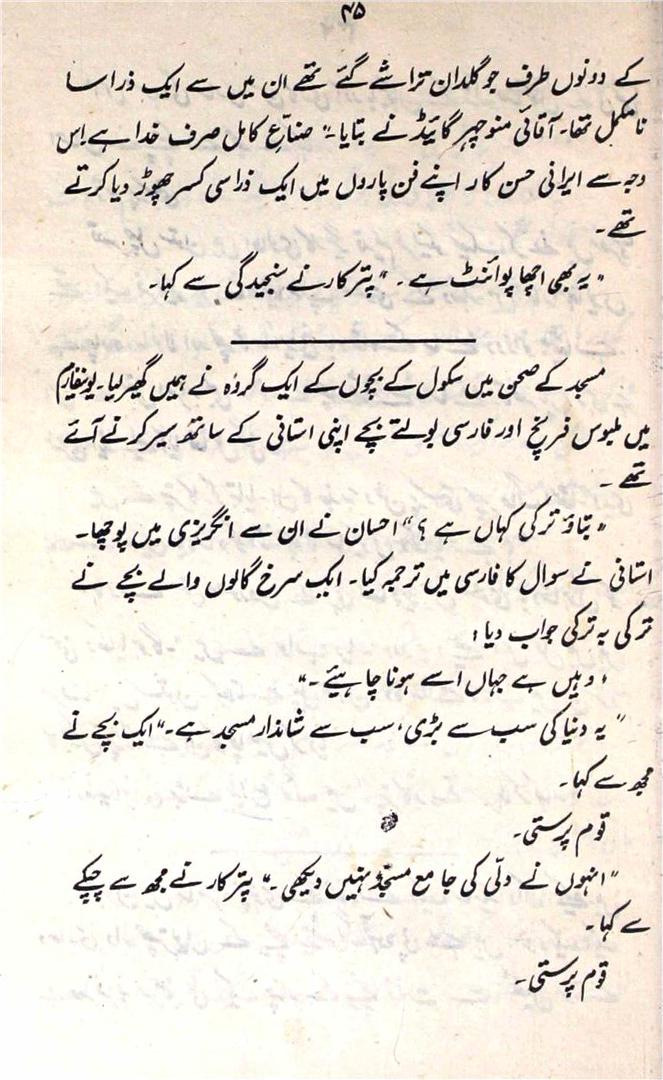 ۴۵
کے دونوں طرف جو گلدان تراشے گئے تھے ان میں سے ایک ذرا سا
نامکمل تھا۔ آقائی منوچہر گائیڈ نے بتایا۔ "صناّعِ کامل صرف خدا ہے اس
وجہ سے ایرانی حسن کار اپنے فن پاروں میں ایک ذرا سی کسر چھوڑ دیا کرتے
تھے۔
"یہ بھی اچھا پوائنٹ ہے۔" پترکار نے سنجیدگی سے کہا۔
مسجد کے صحن میں سکول کے بچوں کے ایک گروہ نے ہمیں گھیر لیا۔ یونیفارم
میں ملبوس فرنچ اور فارسی بولتے بچے اپنی استانی کے ساتھ سیر کرنے آئے
تھے۔
"بتاؤ ترکی کہاں ہے؟" احسان نے ان سے انگریزی میں پوچھا۔
استانی نے سوال کا فارسی میں ترجمہ کیا۔ ایک سرخ گالوں والے بچے نے
ترکی بہ ترکی جواب دیا:
"وہیں ہے جہاں اسے ہونا چاہیئے۔"
"یہ دنیا کی سب سے بڑی، سب سے شاندار مسجد ہے۔" ایک بچے نے
مجھ سے کہا۔
قوم پرستی۔
"انہوں نے دلّی کی جامع مسجد نہیں دیکھی۔" پترکار نے مجھ سے چپکے
سے کہا۔
قوم پرستی۔